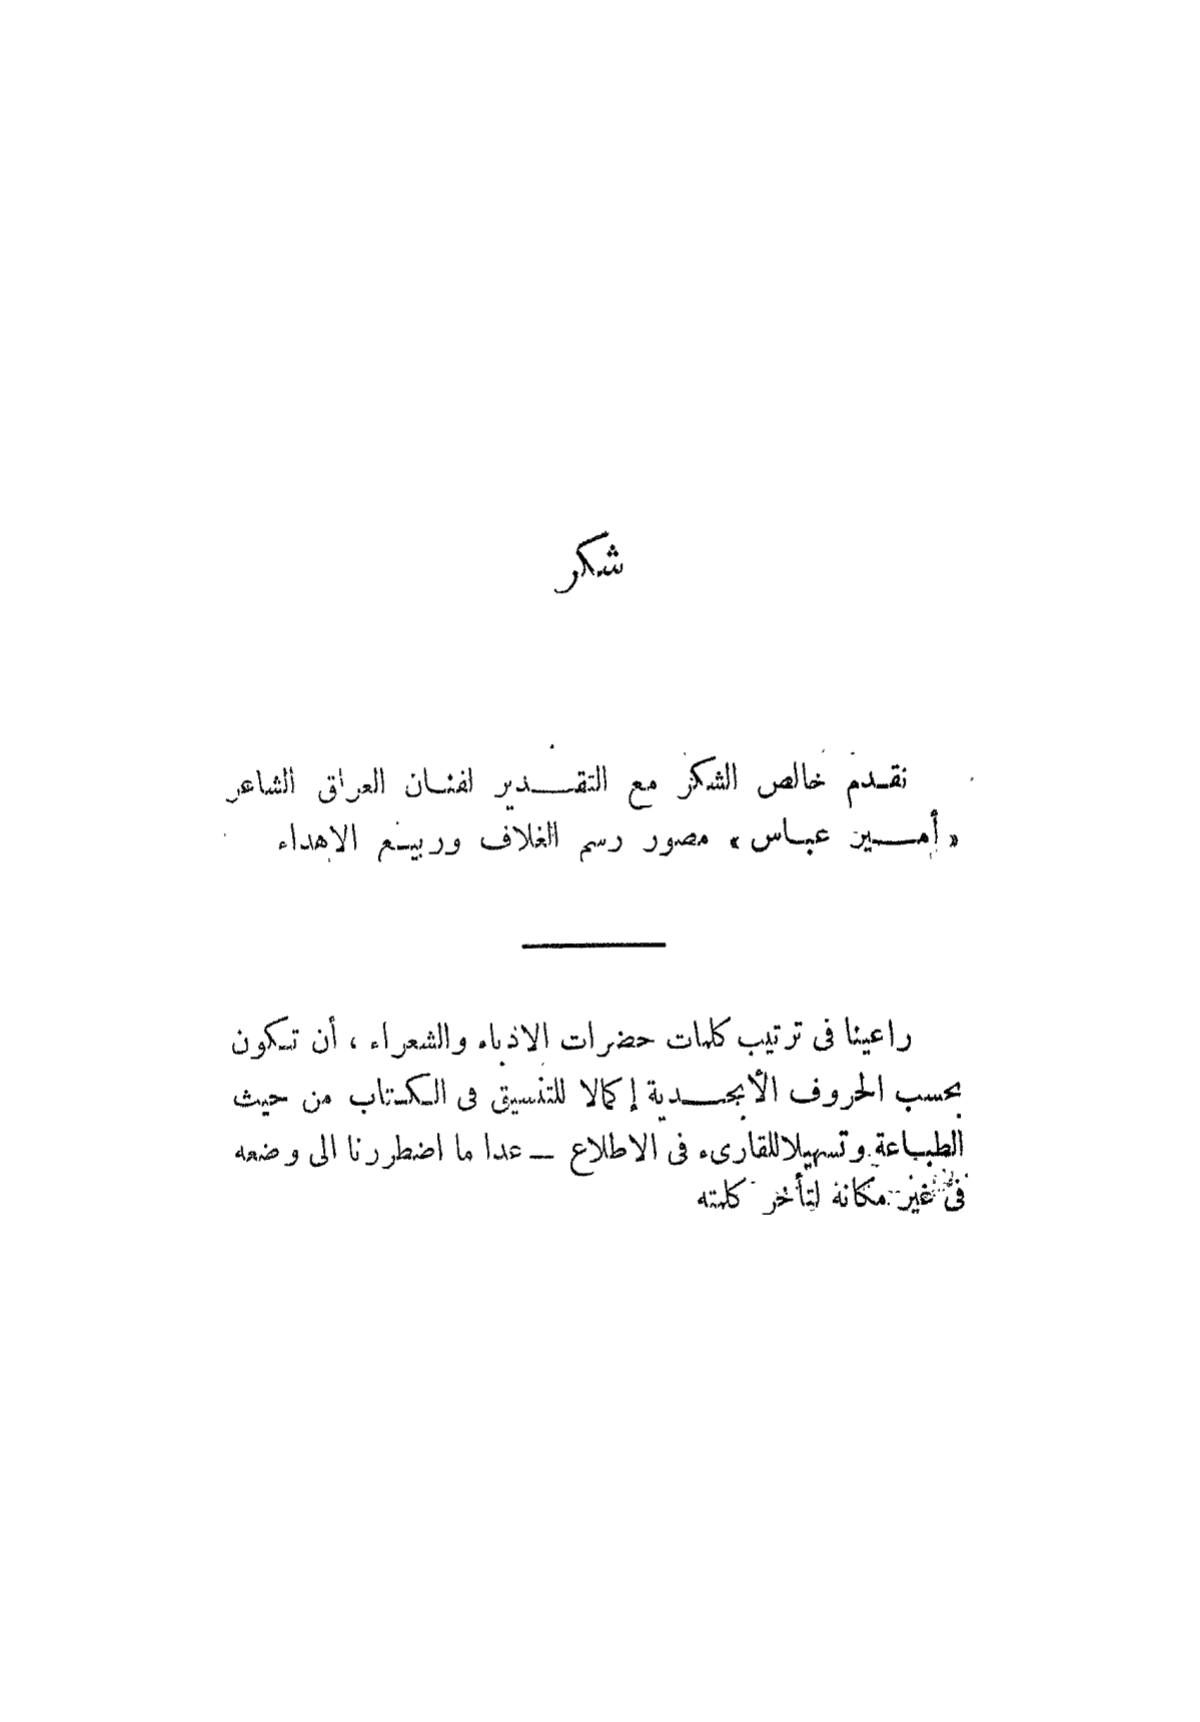 شكر
نقدم خالص الشكر مع التقدير لفنان العراق الشاعر
« أمين عباس » مصور رسم الغلاف وربيع الاهداء
راعينا فى ترتيب كلمات حضرات الادباء والشعراء ، أن تكون
بحسب الحروف الأبجدية إكمالا للتنسيق فى الكتاب من حيث
الطباعة وتسهيلا للقارىء فى الاطلاع — عدا ما اضطررنا الى وضعه
فى غير مكانه لتأخر كلمته